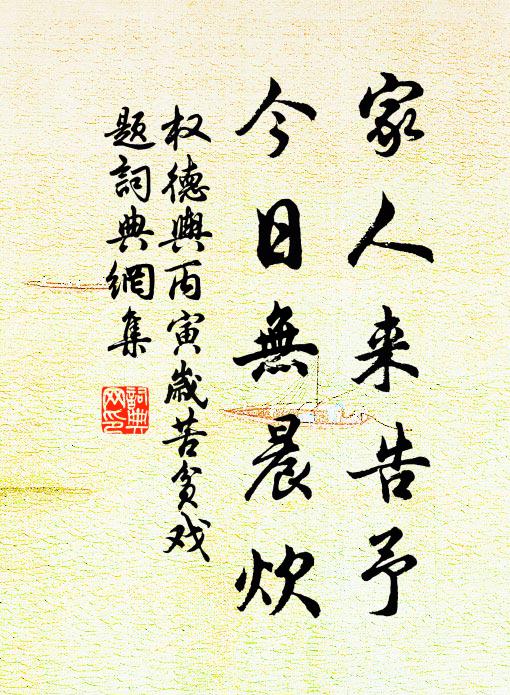 家人来告予
今日無晨炊
权德舆丙寅歲苦贫戏
题詞典網集
詞典
网印